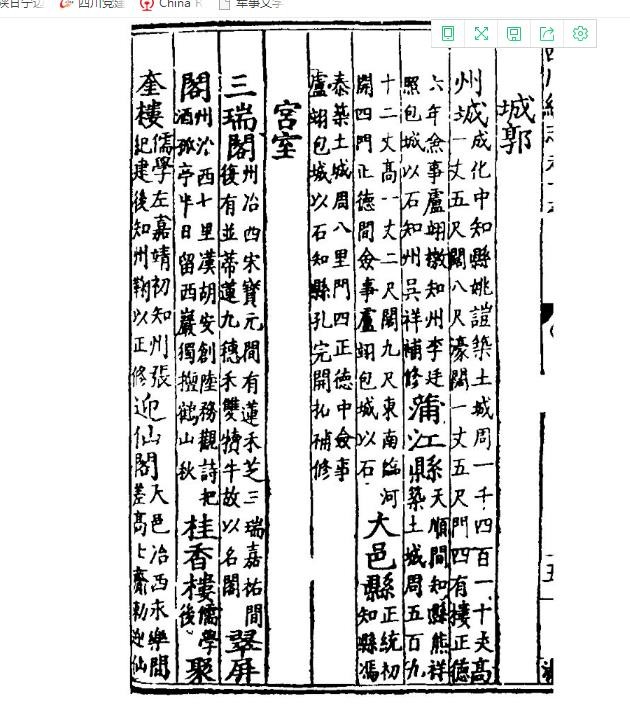 四川党建
China
军事文学
城郭
州城成化中知縣姚諠築土城周一千四百一十丈高
一丈五尺闊八尺濠闊一丈五尺門四有樓正德
六年僉事盧翊檄知州李廷
照包城以石知州吳祥補修
蒲江縣天順間知縣熊祥
築土城周五百九
十二丈高一丈二尺闊九尺東南臨河
開四門正德間僉事盧翊包城以石
大邑縣正統初
知縣馮
泰築土城周八里門四正德中僉事
盧翊包城以石知縣孔完開拓補修
宮室
三瑞閣州治西宋寶元間有蓮禾芝三瑞嘉祐間
後有並蒂蓮九穗禾雙犢牛故以名閣
翠屏
閣州治西七里漢胡安創陸務觀詩把
酒孤亭半日留西巖獨擅鶴山秋
桂香樓儒學
後
聚
奎樓儒學左嘉靖初知州張
紀建後知州靳以正修
迎仙閣大邑治西永樂間
差高上齋勑迎仙